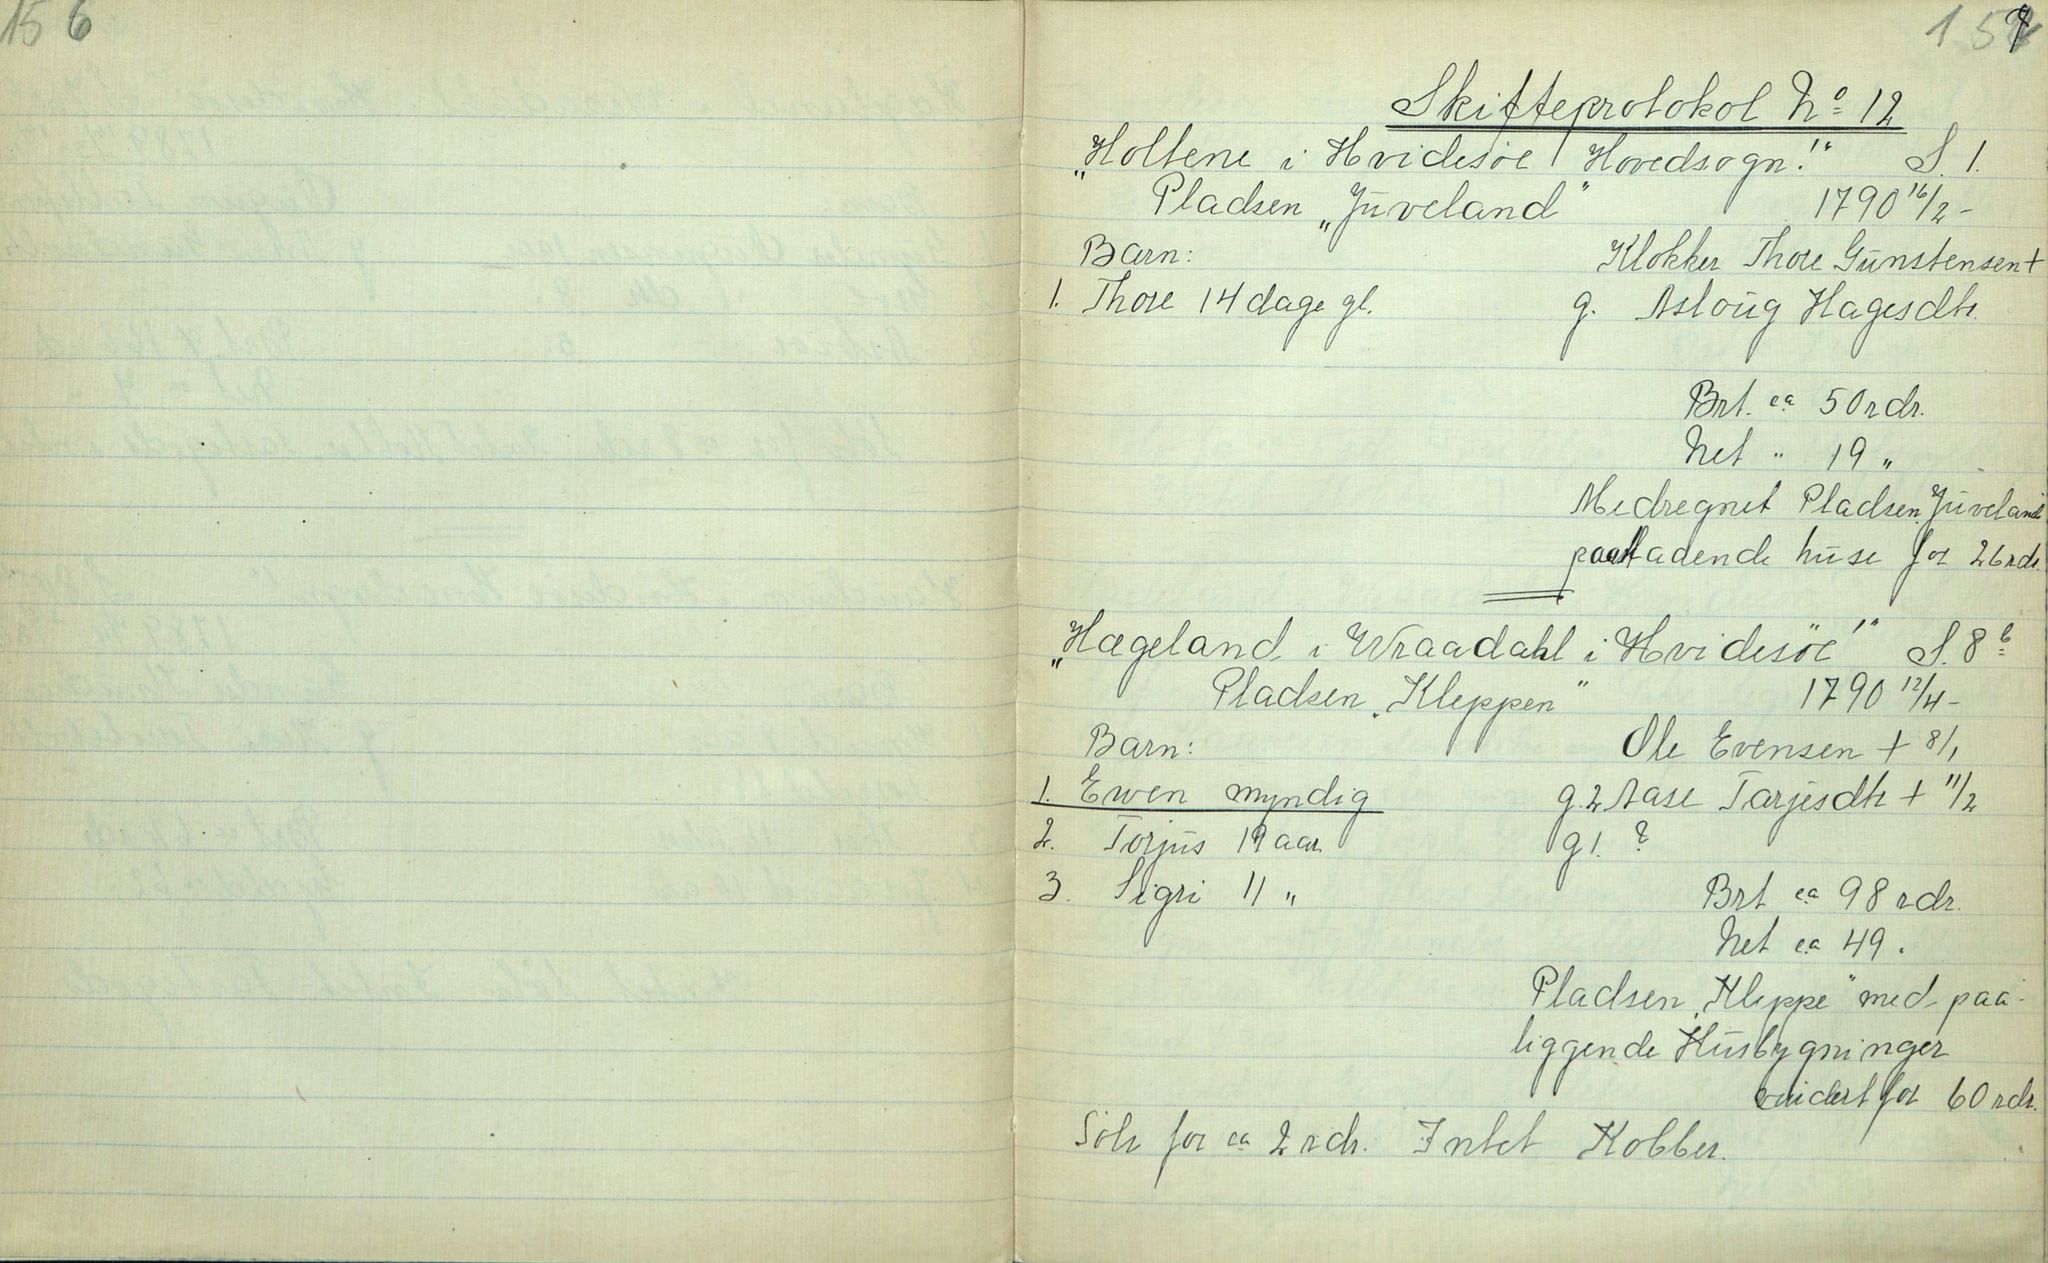 156
157
Skifteprotokol No 12
„Holtene i Hvidesöe Hovedsogn!" S. 1.
Pladsen „Juveland" 1790 16/2 -
Barn: Klokker Thore Gunstensen +
1. Thore 14 dage gl. g. Asloug Hagesdtr.
Brt. ca 50 rdr.
Net " 19 "
Medregnet Pladsen Juveland
paastaaende huse for 26 rdr.
„Hægeland i Wraadahl i Hvidesöe" S. 8 b
Pladsen „Kleppen" 1790 12/4 -
Barn: Ole Evensen + 8/1
1. Ewen myndig g. 2 Aase Tarjesdtr + 11/2
2. Torjus 19 aar g 1. ?
3. Sigri 11 " Brt ca 98 rdr.
Net ca 49 .
Pladsen „Kleppe" med paa-
liggende Husbygninger
vurdert for 60 rdr.
Sölv for ca 2 rdr. Intet Kobber.